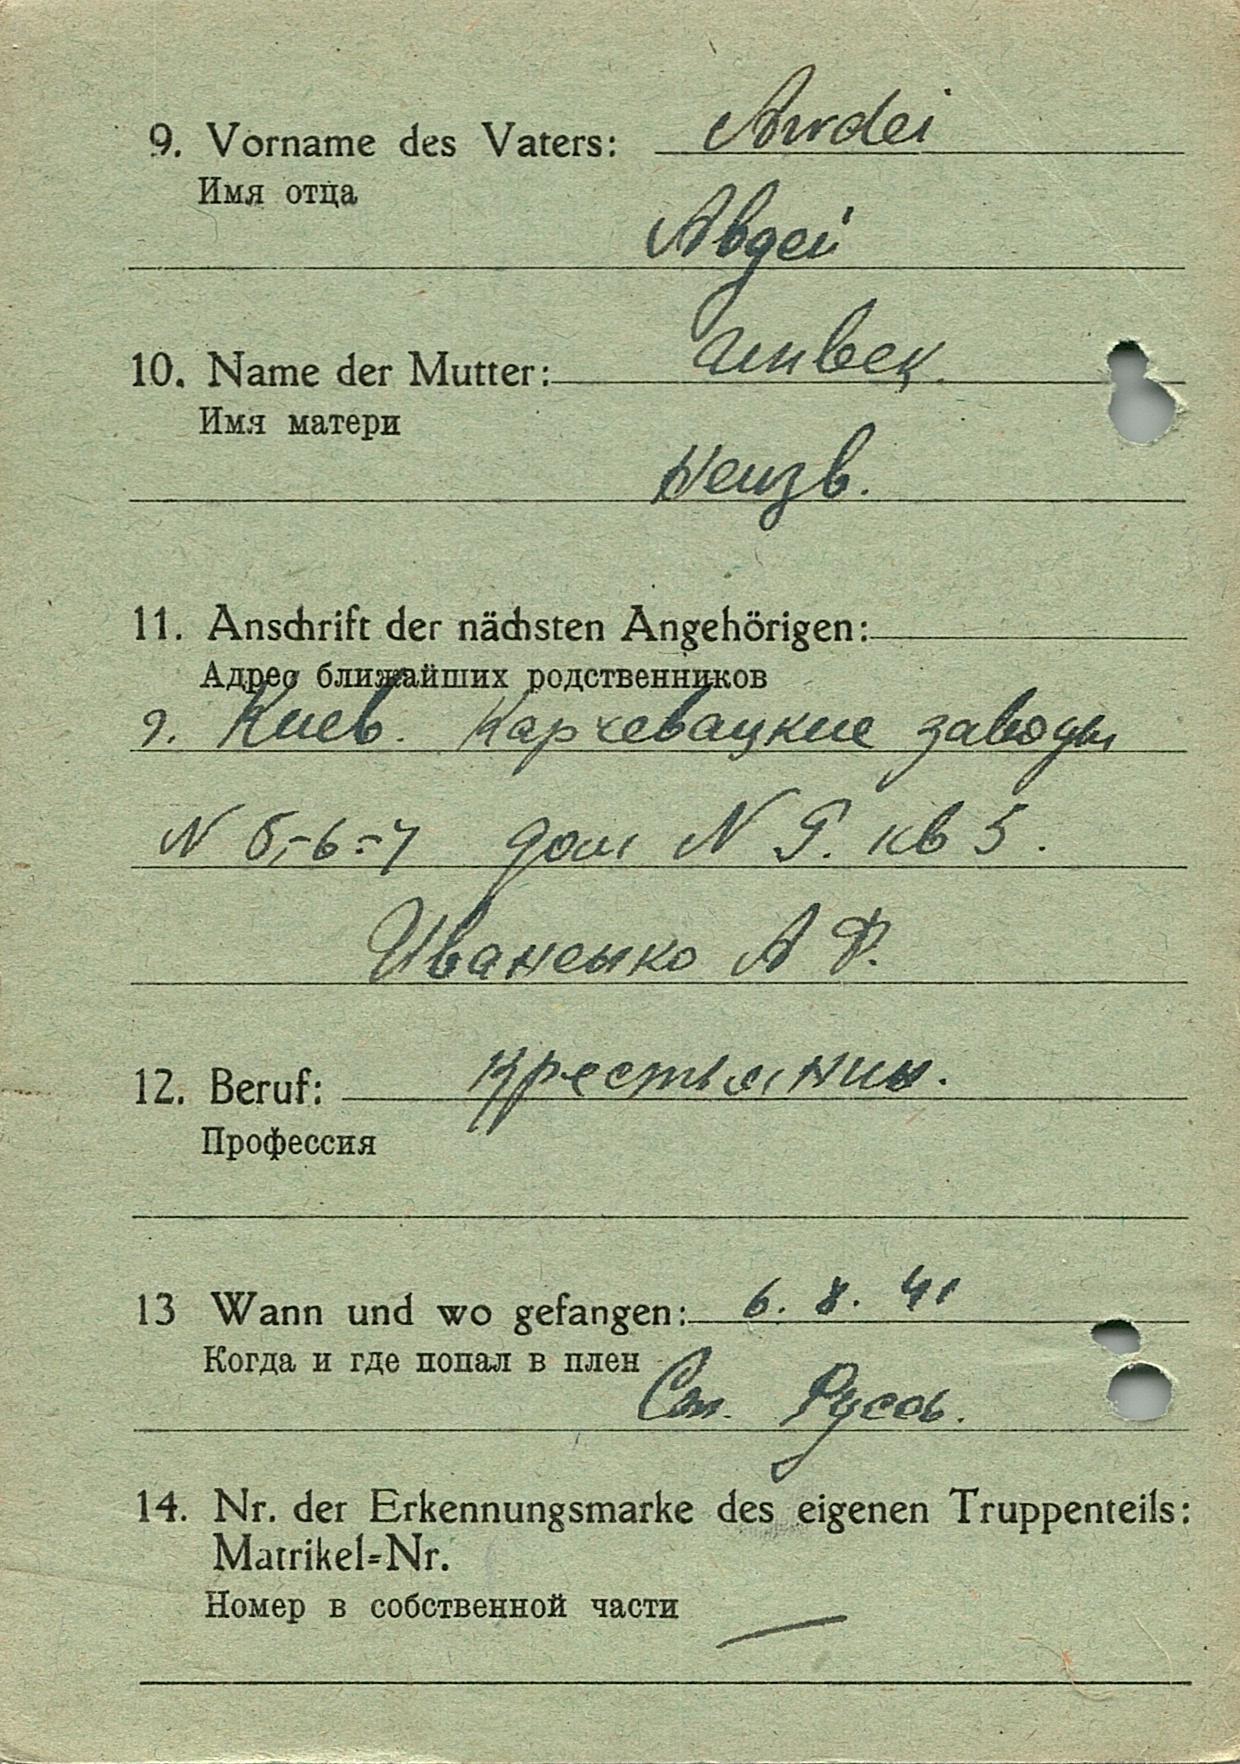 9. Vorname des Vaters: Awdei
Имя отца
Авдей
10. Name der Mutter:
Имя матери
Неизв.
11. Anschrift der nächsten Angehörigen:
Адрес ближайших родственников
г. Киев. Карчевацкие заводы
N 5-6-7 дом N 9. кв 5.
Иваненко А Ф.
12. Beruf: крестьянин.
Профессия
13 Wann und wo gefangen: 6. 8. 41
Когда и где попал в плен
Ст. Русса.
14. Nr. der Erkennungsmarke des eigenen Truppenteils:
Matrikel=Nr.
Номер в собственной части —